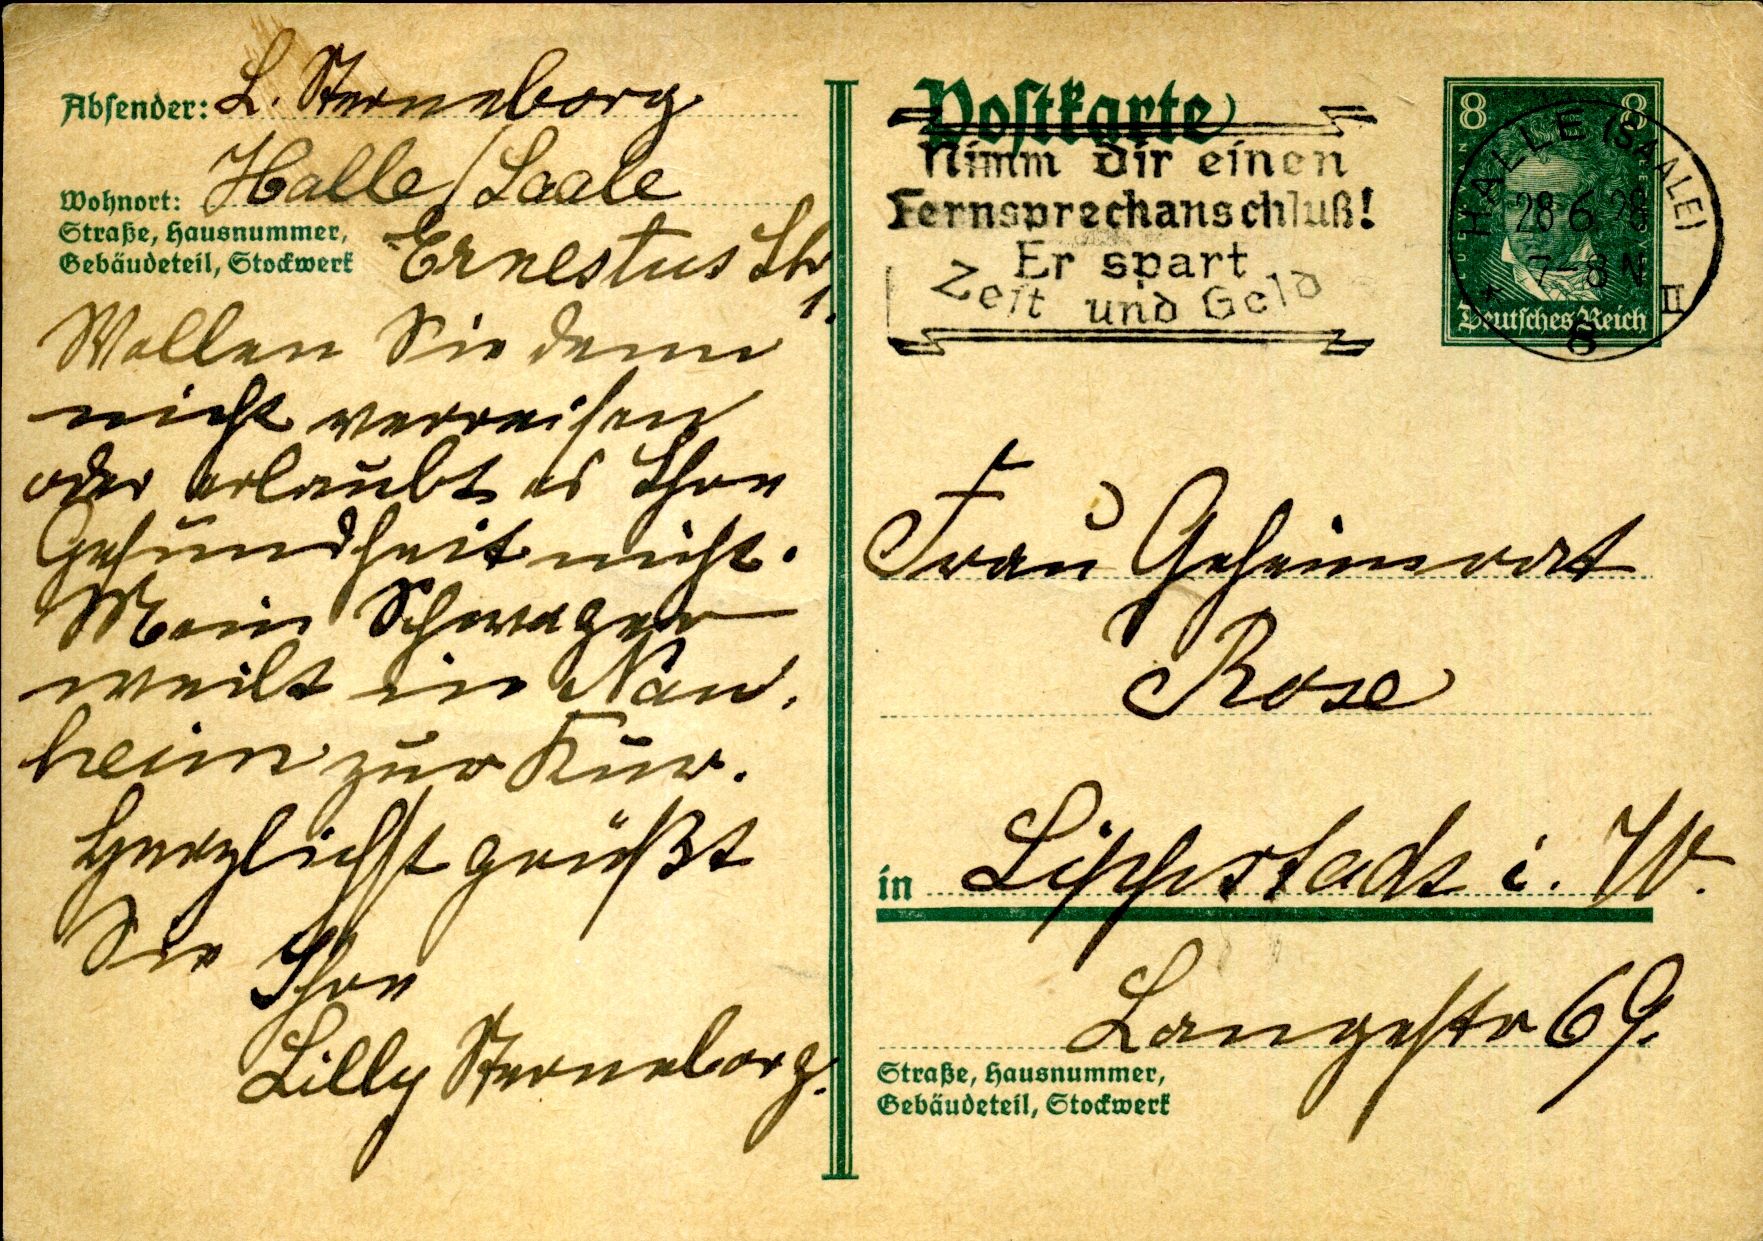 Absender: L. Sterneborg
Wohnort: Halle/Saale
Straße, Hausnummer,
Gebäudeteil, Stockwerk
Ernestus Str
1.
Wollen Sie denn
nicht verreisen
oder erlaubt es Ihre
Gesundheit nicht.
Mein Schwager
weilt in Nau-
heim zur Kur.
Herzlichst grüßt
Sie Ihre
Lilly Sterneborg.
Postkarte
Nimm dir einen
Fernsprechanschluß!
Er spart
Zeit und Geld
8 8
LUDWIG VAN BEETHOVEN
Deutsches Reich
HALLE (SAALE)
28.6.28
7-8 N
* II
8
Frau Geheimrat
Rose
in Lippstadt i. W.
Langestr 69.
Straße, Hausnummer,
Gebäudeteil, Stockwerk